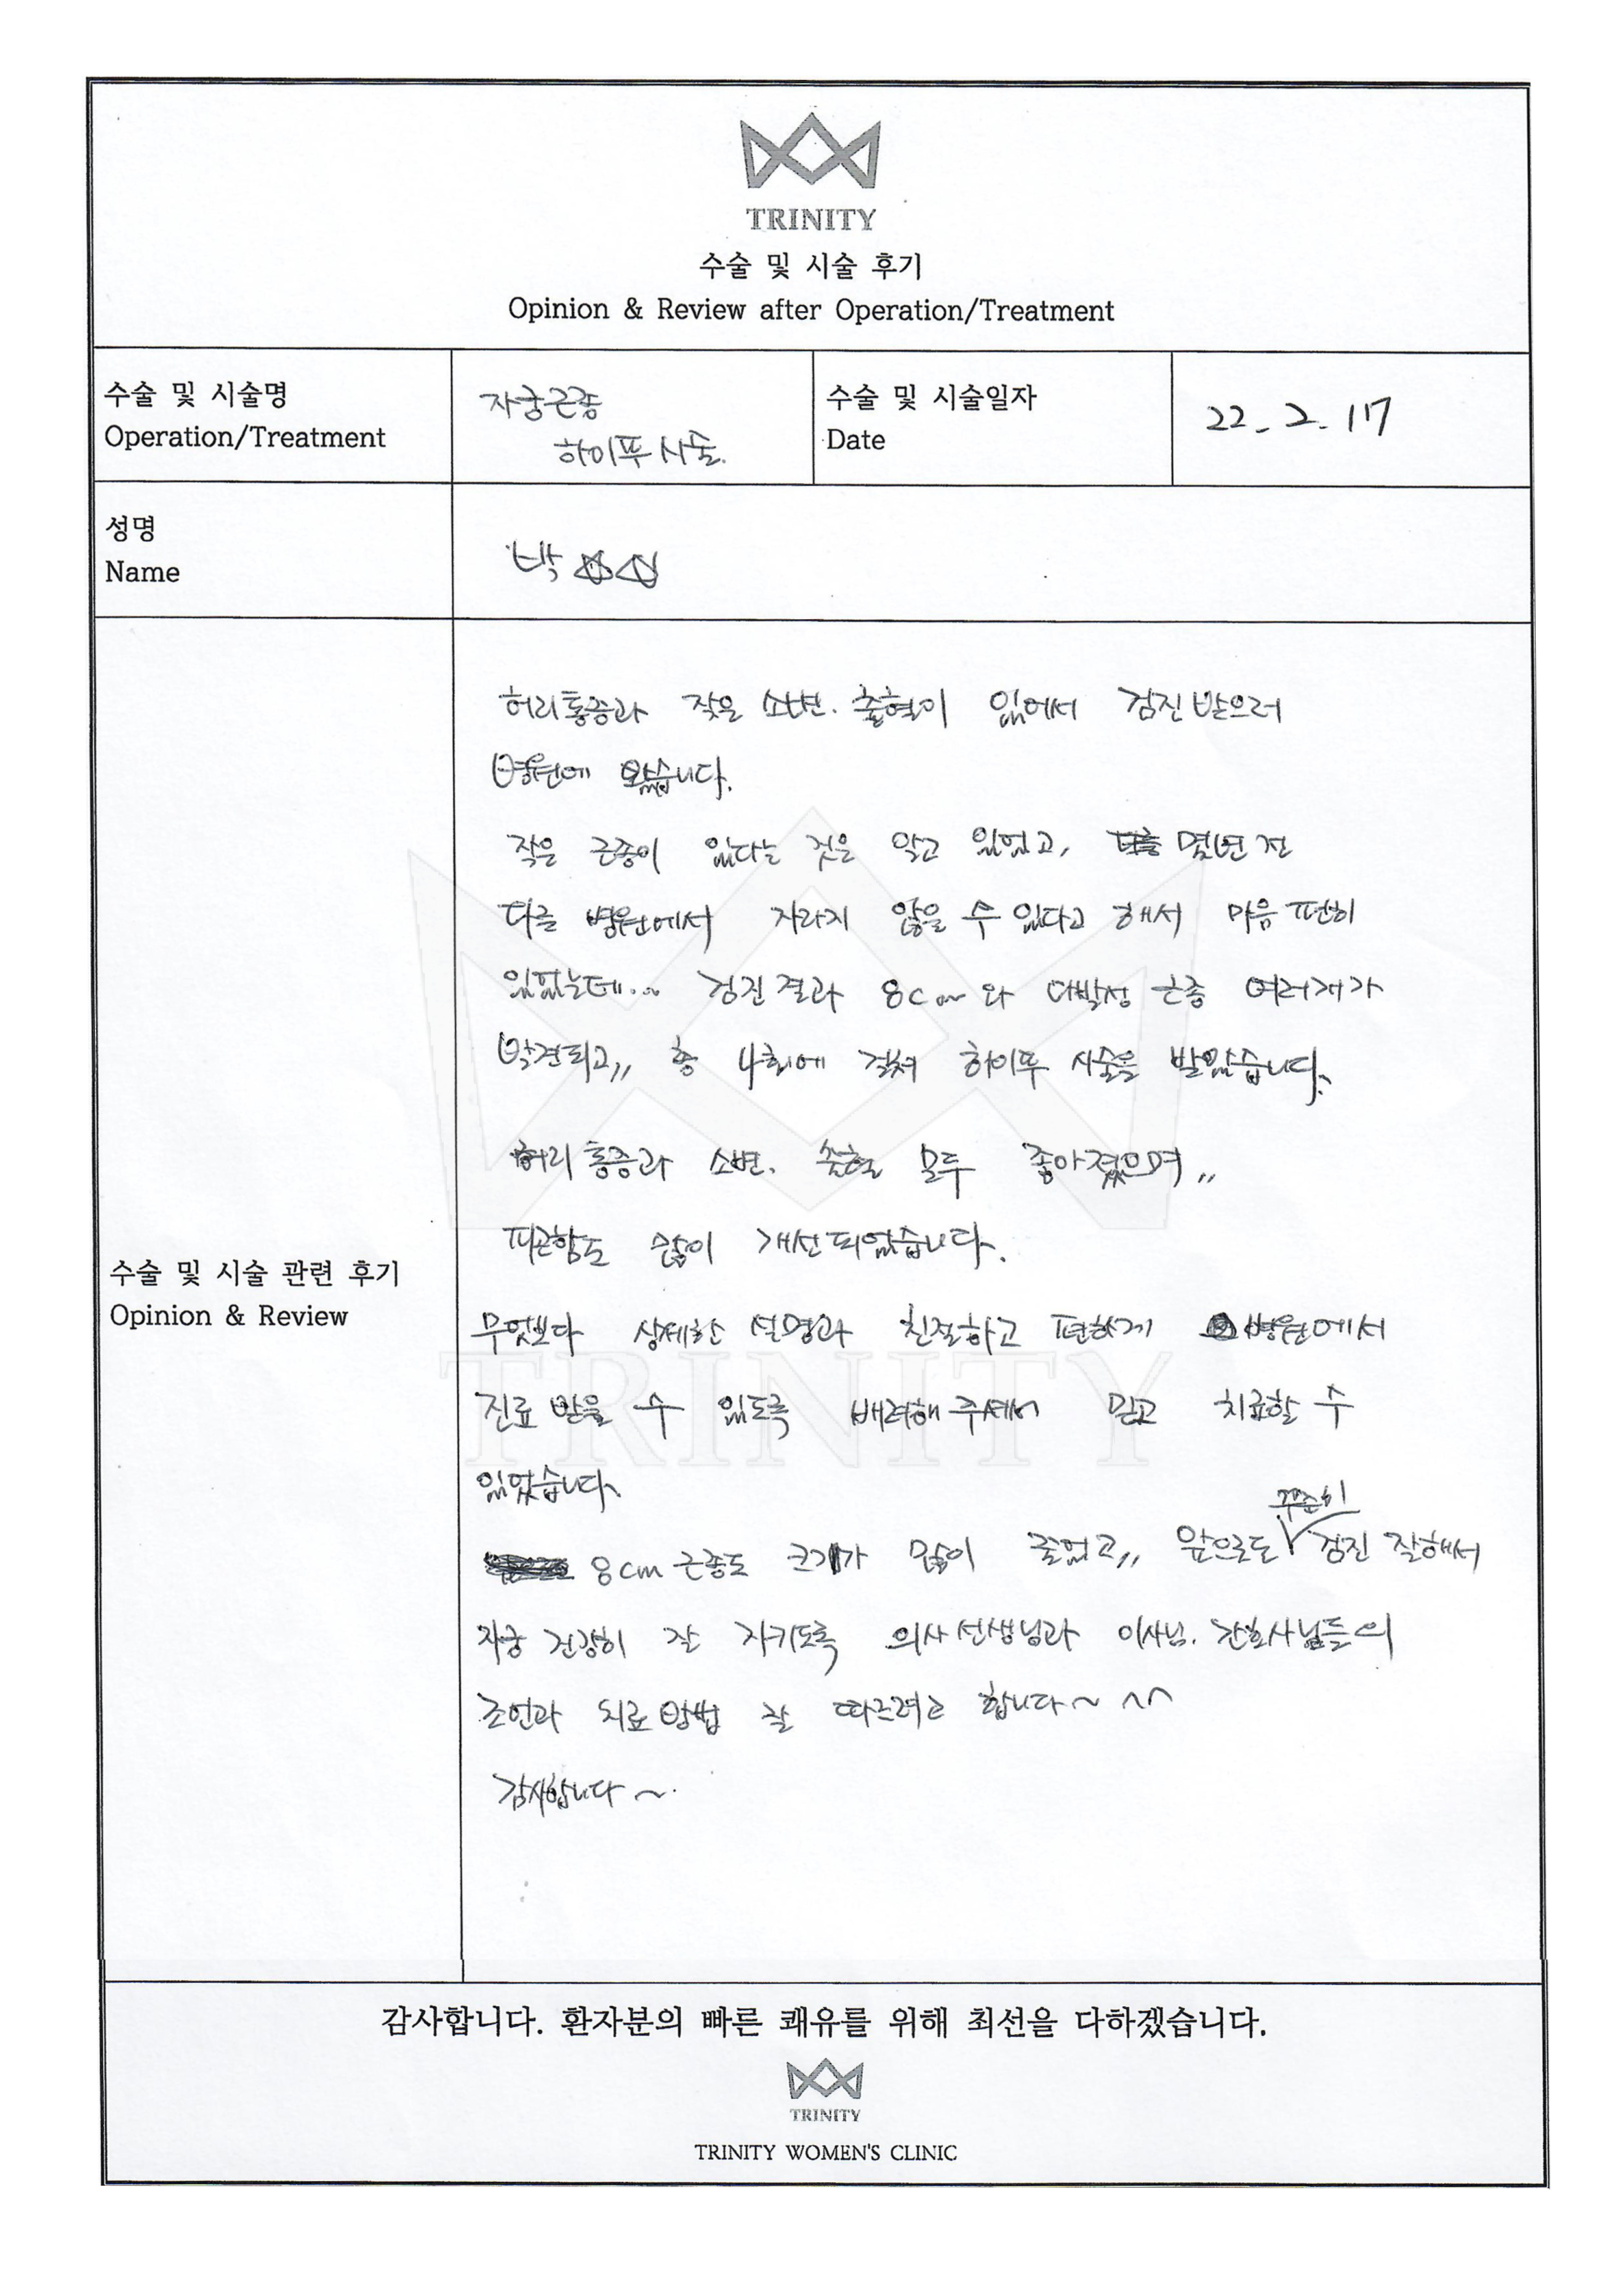 TRINITY
수술 및 시술 후기
Opinion & Review after Operation/Treatment
수술 및 시술명
Operation/Treatment
자궁근종
하이푸시술.
수술 및 시술일자
Date
22-2.17
성명
Name
박☆☆
수술 및 시술 관련 후기
Opinion & Review
허리통증과 잦은 소변. 출혈이 있어서 검진 받으러
병원에 왔습니다.
작은 근종이 있다는 것을 알고 있었고, 몇년 전
다른 병원에서 자라지 않을 수 있다고 해서 마음 편히
있었는데... 검진결과 8cm와 다발성 근종 여러개가
발견되고,, 총 4회에 걸쳐 하이푸 시술을 받았습니다.
허리통증과 소변. 출혈 모두 좋아졌으며,,
피곤함도 많이 개선되었습니다.
무엇보다 상세한 설명과 친절하고 편하게 병원에서
진료 받을 수 있도록 배려해 주셔서 믿고 치료할 수
있었습니다.
8cm 근종도 크기가 많이 줄었고,, 앞으로도 꾸준히 검진 잘해서
자궁 건강히 잘 지키도록 의사선생님과 이사님. 간호사님들의
조언과 치료방법 잘 따르려고 합니다~ ^^
감사합니다~.
감사합니다. 환자분의 빠른 쾌유를 위해 최선을 다하겠습니다.
TRINITY
TRINITY WOMEN'S CLINIC
TRINITY